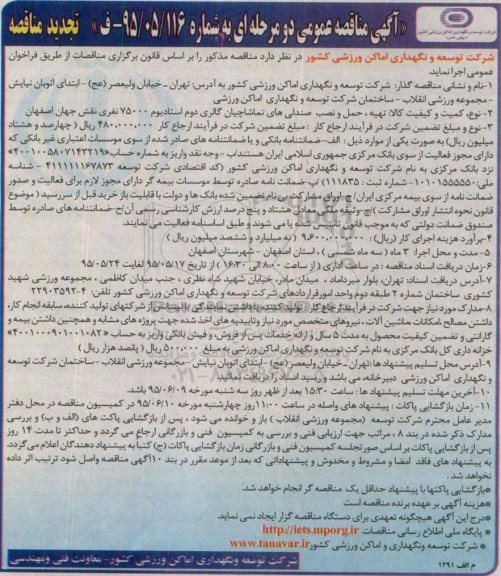 «آگهی مناقصه عمومی دو مرحله ای به شماره ۹۵/۰۵/۱۱۶- ف» تجدید مناقصه
شرکت توسعه و نگهداری اماکن ورزشی کشور در نظر دارد مناقصه مذکور را بر اساس قانون برگزاری مناقصات از طریق فراخوان
عمومی اجرا نماید.
۱-نام و نشانی مناقصه گذار: شرکت توسعه و نگهداری اماکن ورزشی کشور به آدرس: تهران _ خیابان ولیعصر (عج) -ابتدای اتوبان نیایش
- مجموعه ورزشی انقلاب - ساختمان شرکت توسعه و نگهداری اماکن ورزشی
۲-نوع، کمیت و کیفیت کالا: تهیه، حمل و نصب صندلی های تماشاچیان گالری دوم استادیوم ۷۵۰۰۰ نفری نقش جهان اصفهان
۳-نوع و مبلغ تضمین شرکت در فرآیند ارجاع کار : مبلغ تضمین شرکت در فرآیند ارجاع کار ۴۸۰.۰۰۰.۰۰۰ ریال (چهارصد و هشتاد
میلیون ریال) به صورت یکی از موارد ذیل : الف-ضمانتنامه بانکی و یا ضمانتنامه های صادر شده از سوی موسسات اعتباری غیر بانکی که
دارای مجوز فعالیت از سوی بانک مرکزی جمهوری اسلامی ایران هستند/ب - وجه نقد واریز به شماره حساب
نزد بانک مرکزی به نام شرکت توسعه و نگهداری اماکن ورزشی کشور (کد اقتصادی شرکت توسعه ۴۱۱۱۱۱۱۶۷۸۷۳ - شناسه
ملی: ۱۰۱۰۱۵۵۵۵۵۰- شماره ثبت : ۱۱۱۸۳۵) /پ-ضمانت نامه صادره توسط موسسات بیمه گر دارای مجوز لازم برای فعالیت و صدور
ضمانت نامه از سوی بیمه مرکزی ایران/ج-اوراق مشارکت بی نام تضمین شده بانک ها و دولت با قابلیت باز خرید قبل از سررسید ( موضوع
قانون نحوه انتشار اوراق مشارکت )/چ-وثیقه ملکی معادل هشتاد و پنج درصد ارزش کارشناسی رسمی آن/ح-ضمانتنامه های صادره توسط
صندوق ضمانت دولتی که به موجب قانون تاسیس شده یا می شوند و طبق اساسنامه فعالیت می نمایند
۴-برآورد هزینه اجرای کار (ریال) : ۹.۶۰۰.۰۰۰.۰۰۰ (نه میلیارد و ششصد میلیون ریال)
۵- مدت و محل اجرا: ۳ ماه ( سه ماه شمسی ) ، استان اصفهان - شهرستان اصفهان
۶-زمان دریافت اسناد مناقصه : در ساعت اداری ( از ساعت ۸:۰۰ الی ۱۶:۳۰ ) از تاریخ ۹۵/۰۵/۱۷ لغایت ۹۵/۰۵/۲۴
۷-آدرس دریافت اسناد: تهران، بلوار میرداماد ، میدان مادر، خیابان شهید شاه نظری ، جنب میدان کاظمی ، مجموعه ورزشی شهید
کشوری ساختمان شماره ۳ طبقه دوم واحد امور قراردادهای شرکت توسعه و نگهداری اماکن ورزشی کشور تلفن: ۴-۲۲۹۰۳۵۹۲
۸-مدارک مورد نیاز جهت شرکت در فرآیند ارجاع کار :
داشتن مصالح، امکانات ماشین آلات ، نیروهای متخصص مورد نیاز و تاییدیه های اخذ شده جهت پروژه های مشابه و همچنین داشتن بیمه و
گارانتی و تضمین کیفیت محصول به مدت ۵ سال و ارائه خدمات پس از فروش، و فیش بانکی واریز به حساب
خزانه داری کل بانک مرکزی به نام شرکت توسعه و نگهداری اماکن ورزشی به مبلغ ۵۰۰.۰۰۰ ریال (پانصد هزار ریال)
۹-آدرس محل تسلیم پیشنهاد ها: تهران - خیابان ولیعصر (عج) -ابتدای اتوبان نیایش - مجموعه ورزشی انقلاب -ساختمان شرکت توسعه
و نگهداری اماکن ورزشی دبیرخانه، می باشد و رسید اسناد را دریافت نمائید.
۱۰-آخرین مهلت تسلیم پیشنهاد ها: ساعت ۱۵:۳۰ بعد از ظهر روز سه شنبه مورخه ۹۵/۰۶/۰۹ می باشد.
۱۱- زمان بازگشایی پاکات : پیشنهاد های واصله در ساعت ۱۱:۰۰ روز چهارشنبه مورخه ۹۵/۰۶/۱۰ در کمیسیون مناقصه در محل دفتر
مدیر عامل محترم شرکت توسعه (مجموعه ورزشی انقلاب) باز و خوانده می شود ، پس از بازگشایی پاکت های (الف و ب) و بررسی
مدارک ذکر شده در بند ۸ ، مراتب جهت ارزیابی فنی و بررسی به کمیسیون فنی و بازرگانی ارجاع می گردد و حداکثر تا مدت ۱۴ روز
پس از بازگشایی پاکات بر اساس صورتجلسه کمیسیون فنی و بازرگانی زمان بازگشایی پاکات (ج) کتبا به پیشنهاد دهندگان اعلام می گردد.
به پیشنهاد های فاقد امضا و مشروط و مخدوش و پیشنهاداتی که بعد از موعد مقرر در بند ۱۰ آگهی مناقصه واصل شود ترتیب اثر داده
نخواهد شد .
*بازگشایی پاکتها با پیشنهاد حداقل یک مناقصه گر انجام خواهد شد.
*هزینه آگهی بر عهده برنده مناقصه است
*درج این آگهی هیچگونه تعهدی برای دستگاه مناقصه گزار ایجاد نمی نماید.
* پایگاه ملی اطلاع رسانی مناقصات http://iets.mporg.ir
* شرکت توسعه ونگهداری و اماکن ورزشی کشور www.tanavar.ir
م الف ۱۲۹۱
شرکت توسعه ونگهداری اماکن ورزشی کشور- معاونت فنی ومهندسی